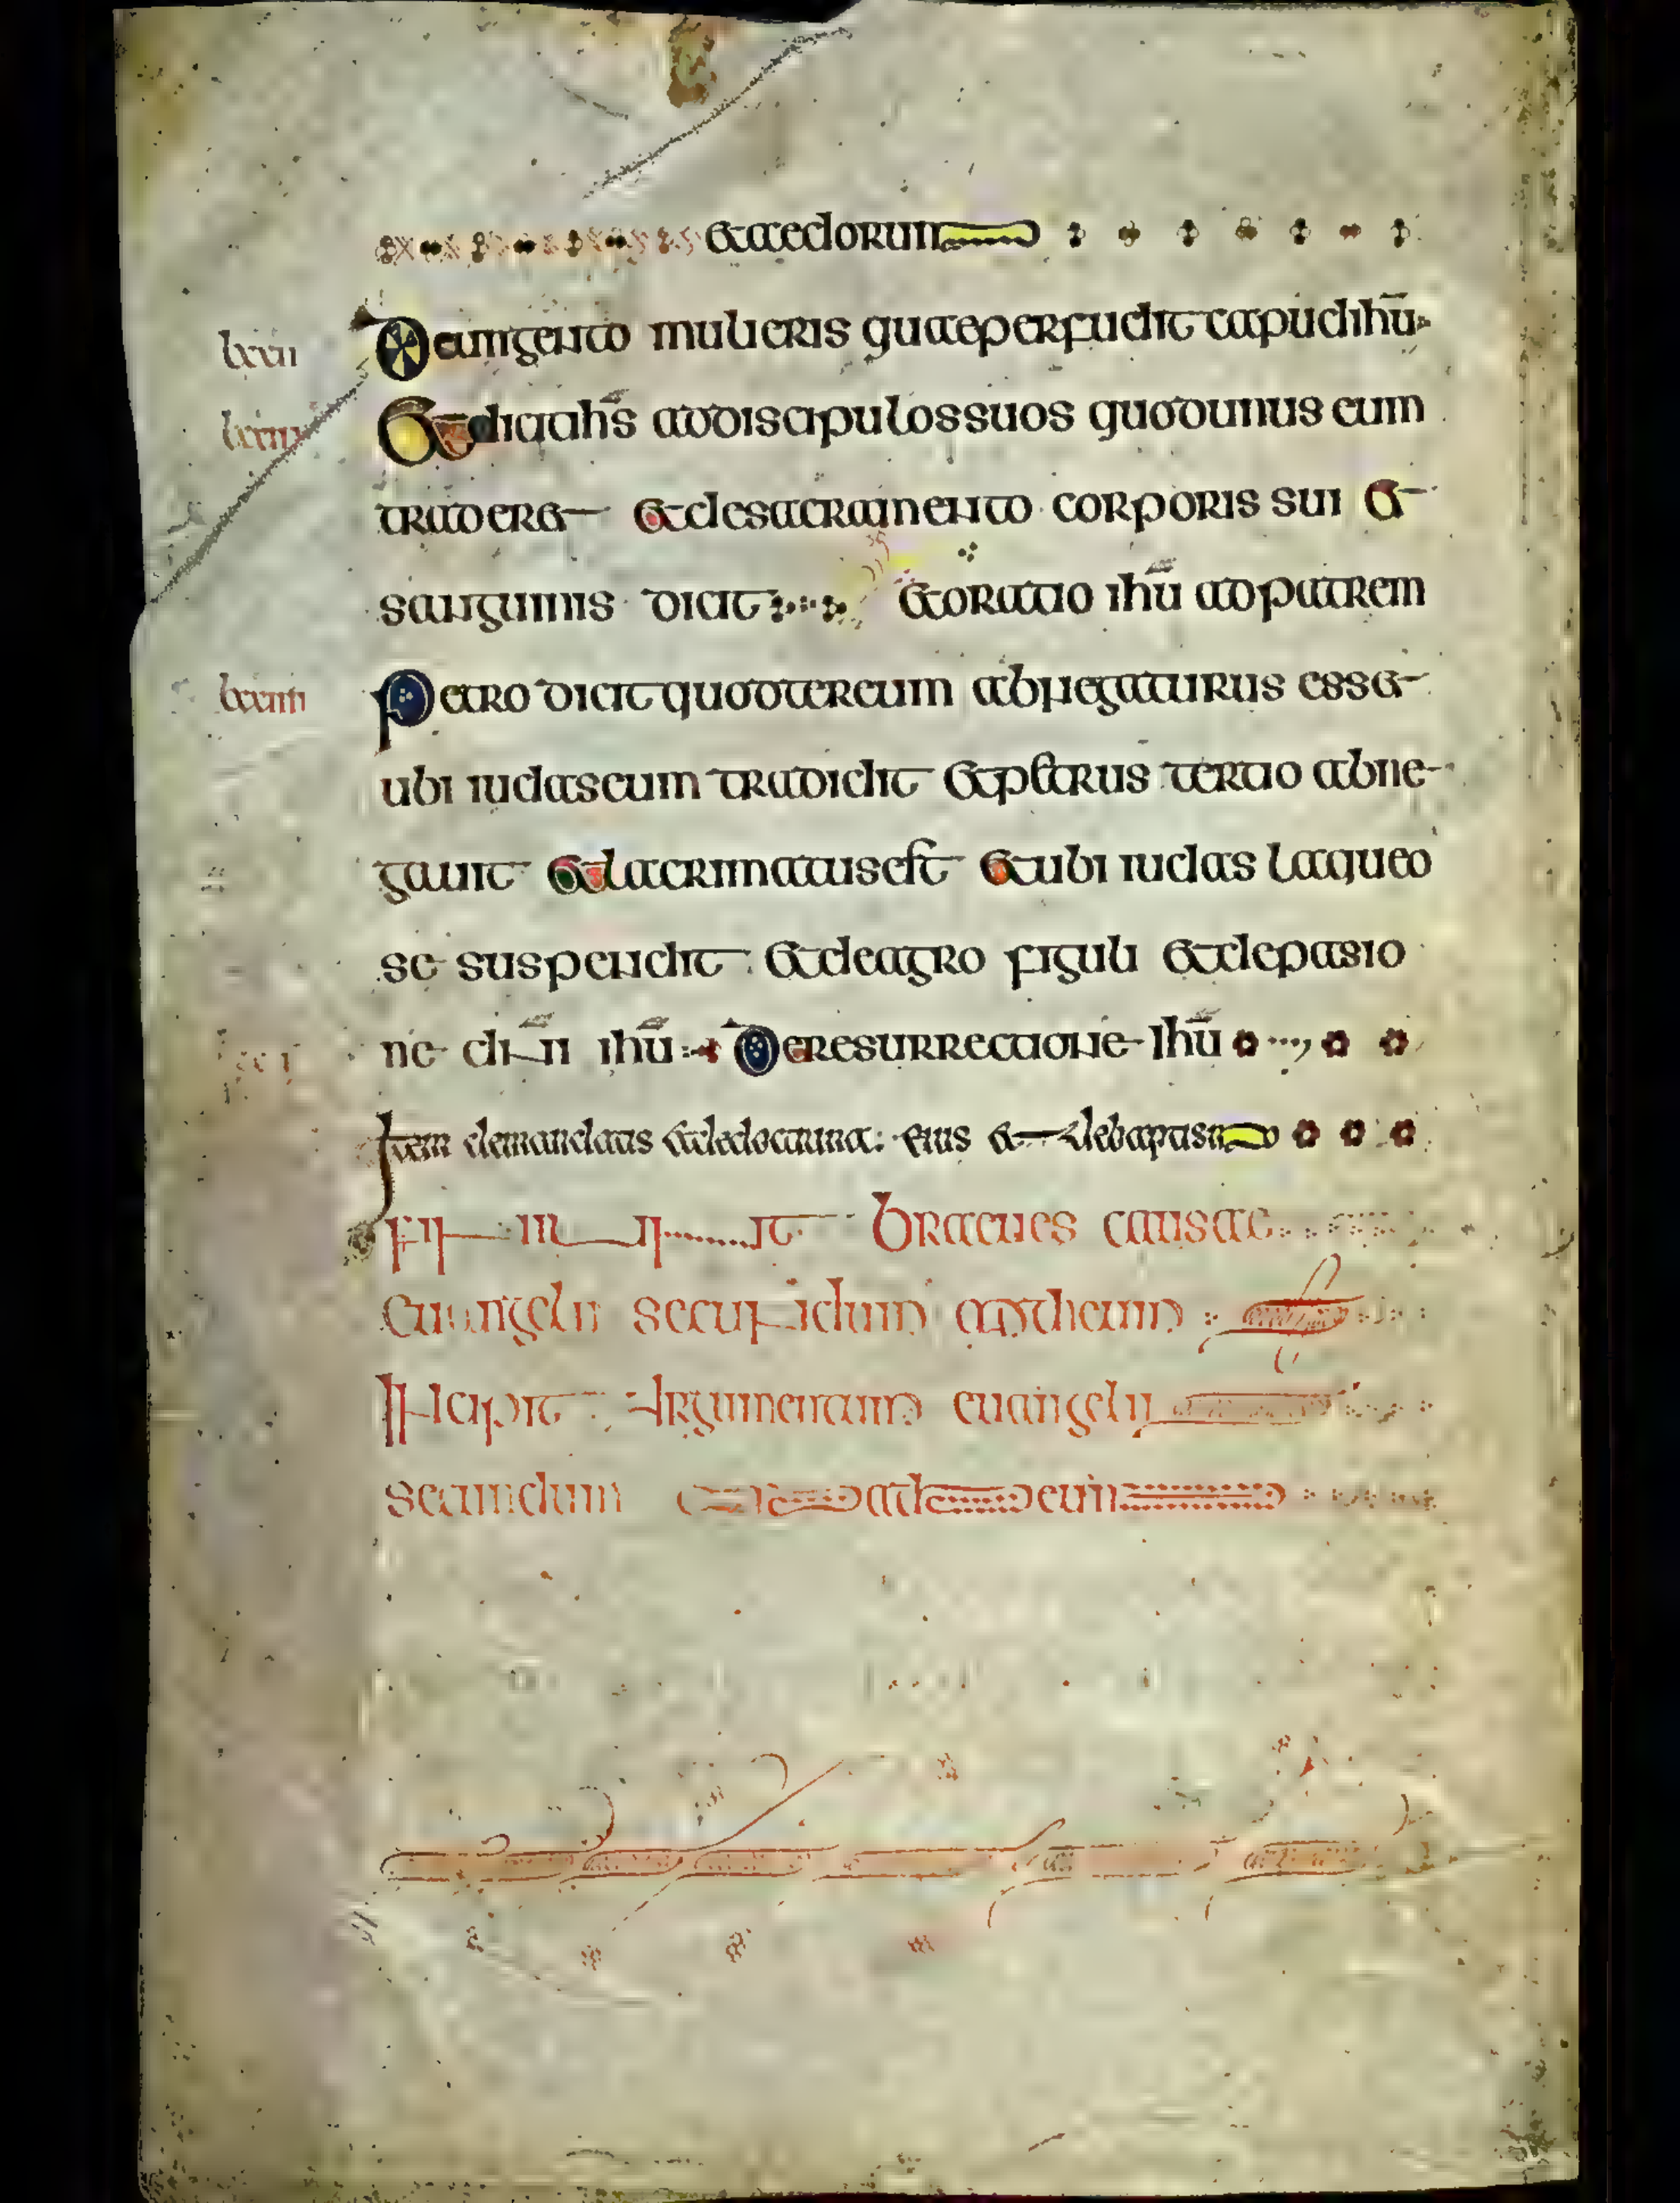 et aedorum
lxxii De ungento mulieris quae perfudit capud ihu
lxxiii Et dicit ihs ad discipulos suos quod unus eum
traderet et de sacramento corporis sui et
sanguinis dicit et oratio ihu ad patrem
lxxiiii Petro dicit quod ter eum abnegaturus esset
ubi iudas eum tradidit et petrus tertio abne
gauit et lacrimatus est et ubi iudas laqueo
se suspendit et de agro figuli et de pasio
ne dni ihu De resurrectione ihu
Item de mandatis et de doctrina eius et de baptismo
Finit Braeues causae
euangelii secundum mattheum
Incipit Argumentum euangelii
secundum matheum